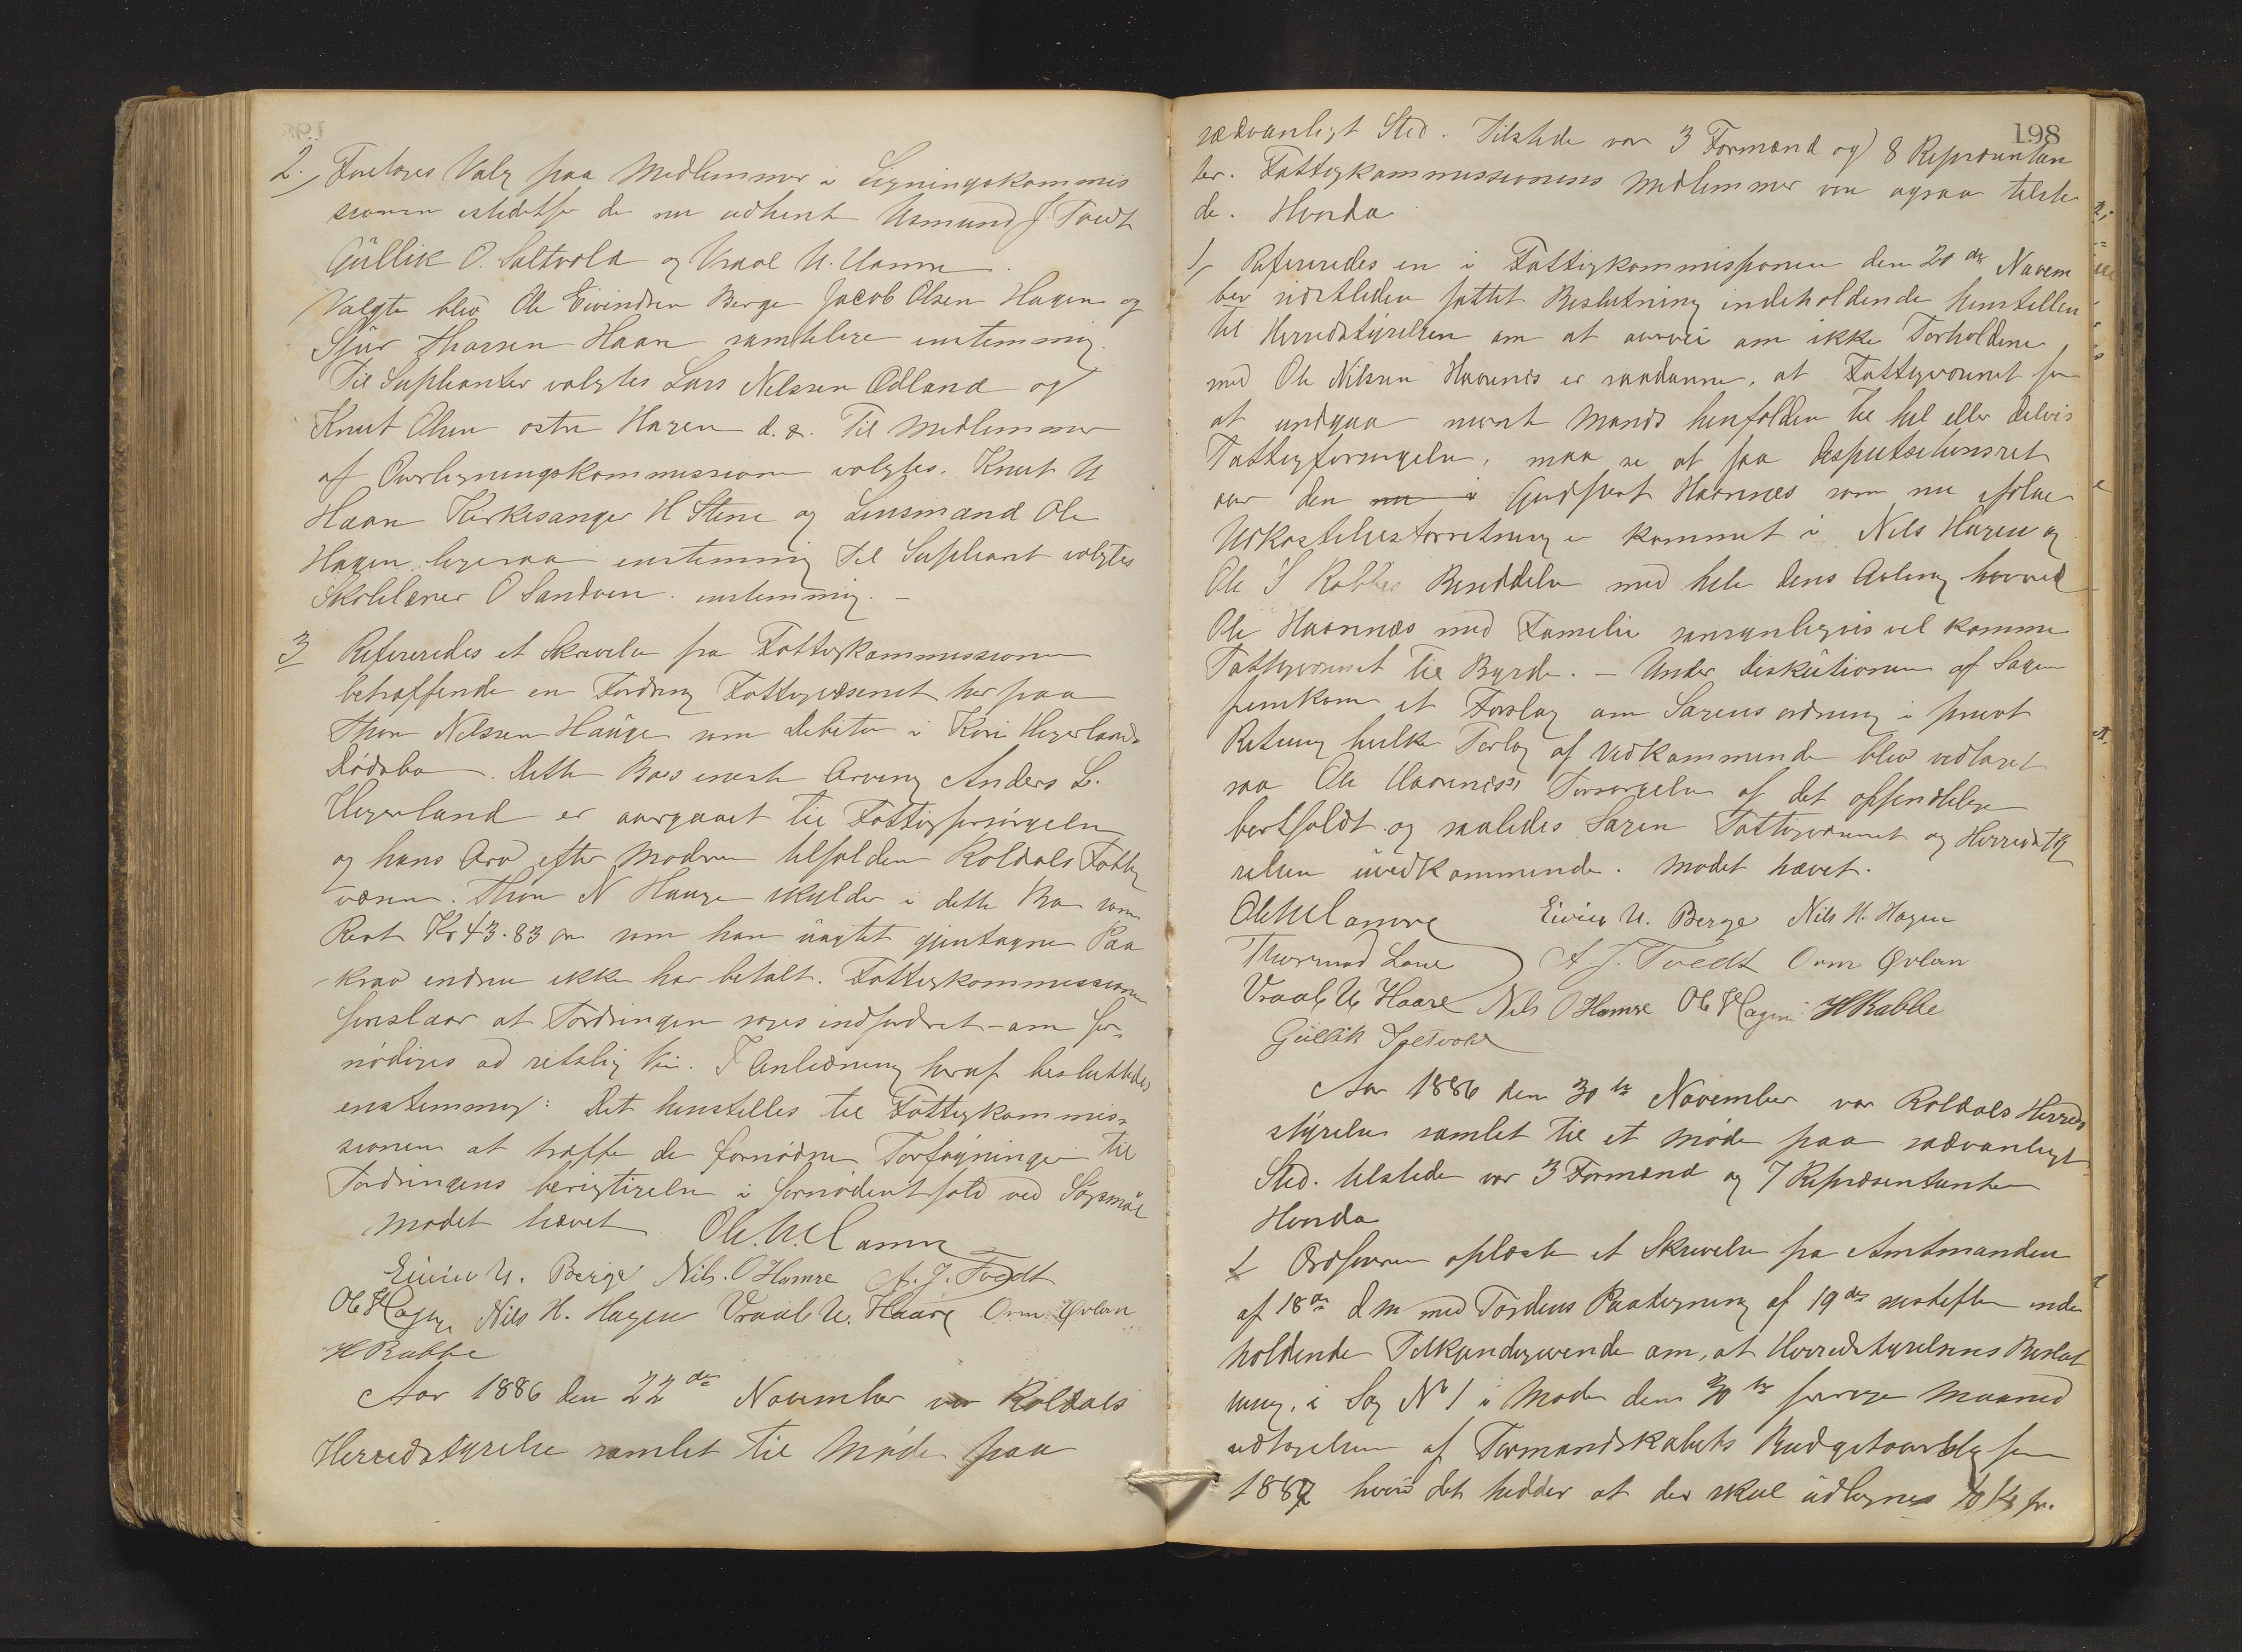 2. Foretoges Valg paa Medlemmer i Ligningskommis
sionen istedetfor de nu udtrent Asmund J. Tvedt
Güllik O. Saltvold og Vraal U.
Valgte blev Ole Eivindsen Berge Jacob Olsen Hagen og
Sjur Thorsen Haare samtlige enstemmig.
Til Suplianter valgtes Lars Nilssen Odland og
Knut Olsen østre Hagen d. æ. Til Medlemmer
af Overligningskommissionen valgtes. Knut U
Haare Kirkesanger H Stene og Lensmand Ole
Hagen ligesaa enstemmig Til Supliant valgtes
Skolelærer O Sandven. enstemmig. –
3 Refereredes et Skrivelse fra Fattigkommissionen
betræffende en Fordring Fattigvæsenet har paa
Thor Nilssen Hauge som Debitor i Kari Hegerlands
Dødsbo. Dette Bos eneste Arving Anders L.
Hegerland er overgaaet til Fattigforsørgelse
og hans Arv efter Moderen tilfalden Røldals Fattig
væsen. Thor N Hauge skylder i dette Bo som
Rest Kr 43.83 ør som han uagtet gjentagne Paa
krav endnu ikke har betalt. Fattigkommissionen
foreslaar at Fordringen søges indfordret – om for-
nødiges ad retslig Vei. I Anledning heraf besluttedes
enstemmig: Det henstilles til Fattigkommis-
sionen at træffe de fornødne Forføininger til
Fordringens berigtigelse i fornødent fald ved Søgsmål
Mødet hævet Ole. N. Hamre
Eivin U. Berge Nils. O Hamre A. J. Tvedt
Ole H Hagen Nils H. Hagen Vraal U. Haare Orm Øvland
H Rabbe
Aar 1886 den 22de November var Røldals
Herredstyrelse samlet til Møde paa
198
sædvanligt Sted. Tilstede var 3 Formænd og 8 Repræsentan
ter. Fattigkommissionens Medlemmer var ogsaa tilste
de. Hvorda
1, Refereredes en i Fattigkommissionen den 20de Novem
ber sidstleden fattet Beslutning indeholdende henstillen
til Herredstyrelsen om at overvei om ikke Forholdene
med Ole Nilssen Haarenæs er saadanne, at Fattigvæsenet for
at undgaa nævnte Mands henfalden til hel eller delvis
Fattigforsørgelse, maa se at faa Disputsetionsret
over den Jordpart Haarenæs som nu ifølge
Udkastelsesforretning er kommet i Nils Hagen og
Ole S Rabbes Besiddelse med hele dens Avling hvorved
Ole Haarenæs med Familie sansynligvis vil komme
Fattigvæsenet til Byrde. – Under Diskutionen af Sagen
fremkom et Forslag om Sagens ordning i privat
Retning hvilke Forlag af Vedkommende blev vedtaget
saa Ole Haarenæss Forsørgelse af det offendtlige
bortfaldt og saaledes Sagen Fattigvæsenet og Herredsty
relsen uvedkommende. Mødet hævet.
Ole N Hamre Eivin U. Berge Nils H. Hagen
Thormod Lone A. J. Tvedt Orm Øvland
Vraal U Haare Nils O Hamre Ole H Hagen H Rabbe
Güllik Saltvold
Aar 1886 den 30te November var Røldals Herreds
styrelse samlet til et Møde paa sædvanligt
Sted. tilstede var 3 Formænd og 7 Repræsentanter
Hvorda
1 Ordføreren oplæste et Skrivelse fra Amtmanden
af 18de d m med Fogdens Paategning af 19de næstefter inde
holdende Tilkjendegivende om, at Herredstyrelsens Beslut
ning, i Sag No 1 i Møde den 30te forrige Maaned
vedtagelsen af Formandskabets Budgetoverslag for
1887 hvori det hedder at der skal udlignes 10 Kr pr.